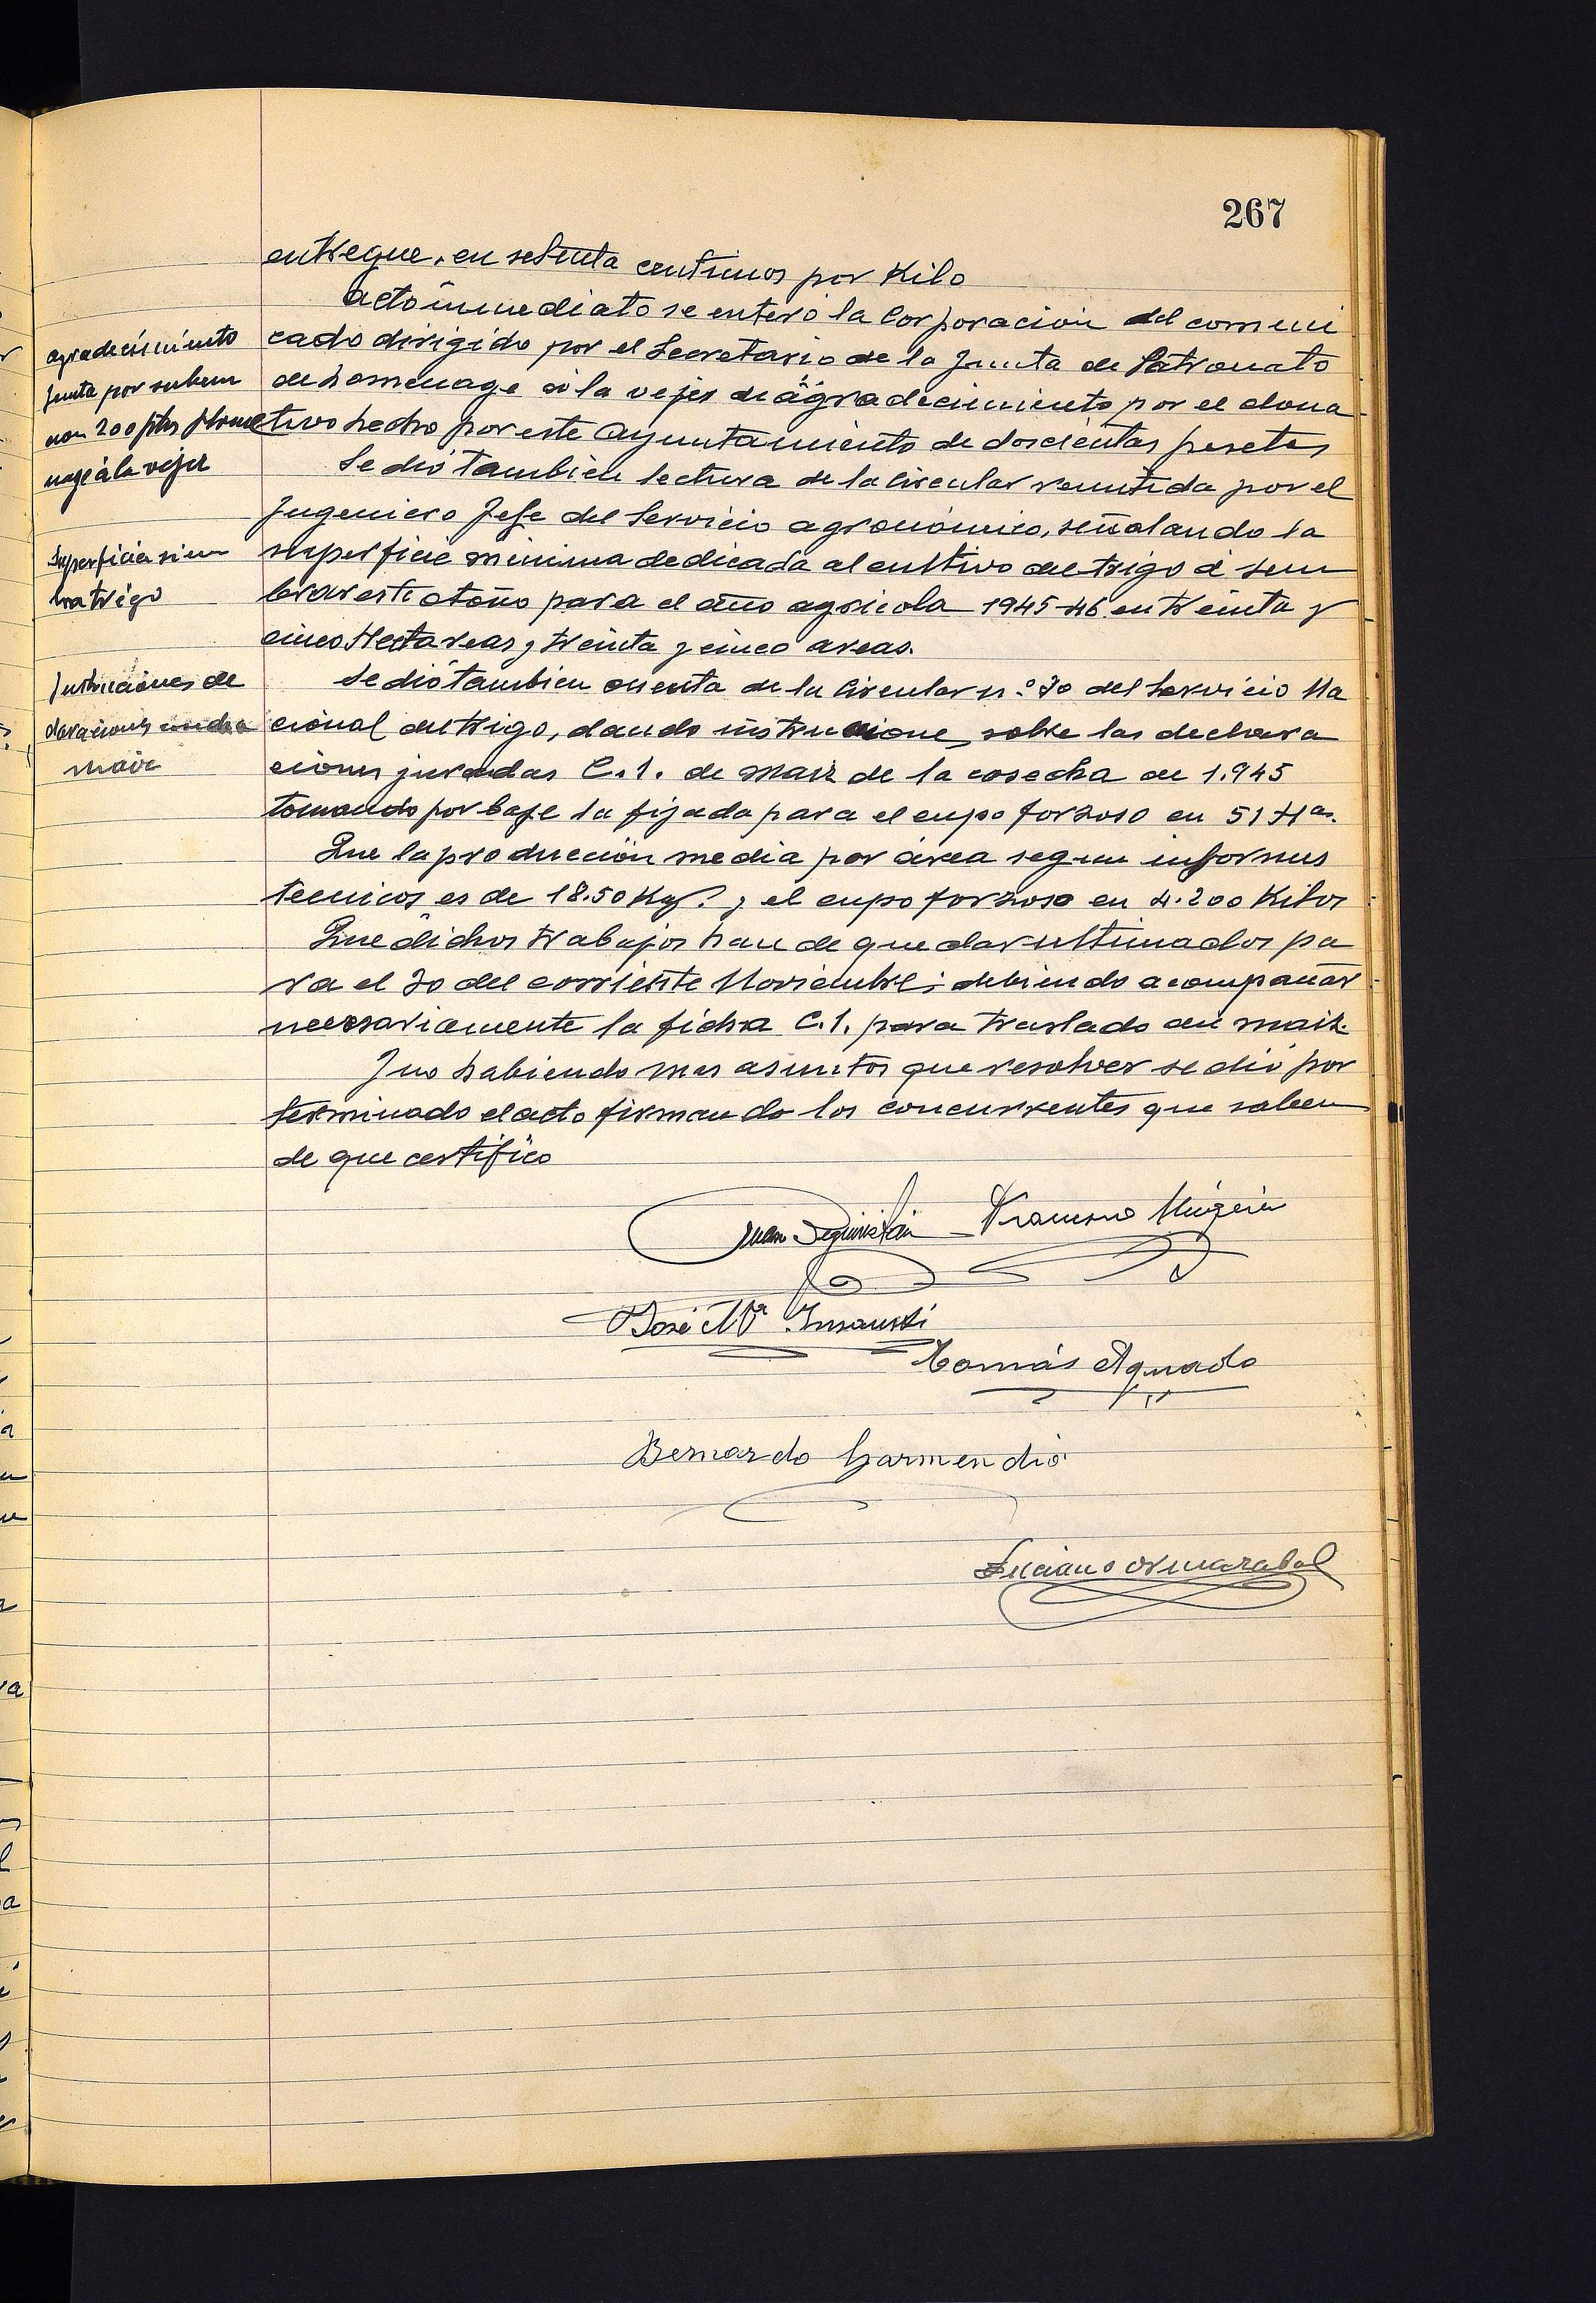 267
entregue, en setenta centimos por Kilo
Acto inmediato se enteró la Corporación del comuni
cado dirigido por el Secretario de la Junta de Patronato
de homenage á la vejes de agradecimiento por el dona
tivo hecho por este Ayuntamiento de doscientas pesetas
Se dió tambien lectura de la Circular remitida por el
Ingeniero Jefe del Servicio agronómico, señalando la
superficie minima dedicada al cultivo de trigo á sem
brar este otoño para el año agricola 1945-46 en treinta y
cinco Hectareas y treinta y cinco areas.
Se dió tambien cuenta de la Circular n.º 30 del Servicio Na
cional del trigo, dando instruciones sobre las declara
ciones juradas C.1. de maiz de la cosecha de 1.945
tomando por base la fijada para el cupo forzoso en 51 Has.
Que la producción media por área segun informes
tecnicos es de 18.50 Kgs. y el cupo forzoso en 4.200 Kilos
Que dichos trabajos han de quedar ultimados pa
ra el 30 del corriente Noviembre; debiendo acompañar
necesariamente la ficha C.1. para traslado de maiz.
Y no habiendo mas asuntos que resolver se dió por
terminado el acto firmando los concurrentes que saben
de que certifico
agradecimiento
Junta por subven
non 200 ptas p home
nage á la vejez
Superficie siem
bra trigo
Instruciones de
claraciones
maiz
Juan
Francisco
José Mª Insausti
Tomás Aguado
Bernardo Garmendia
Luciano